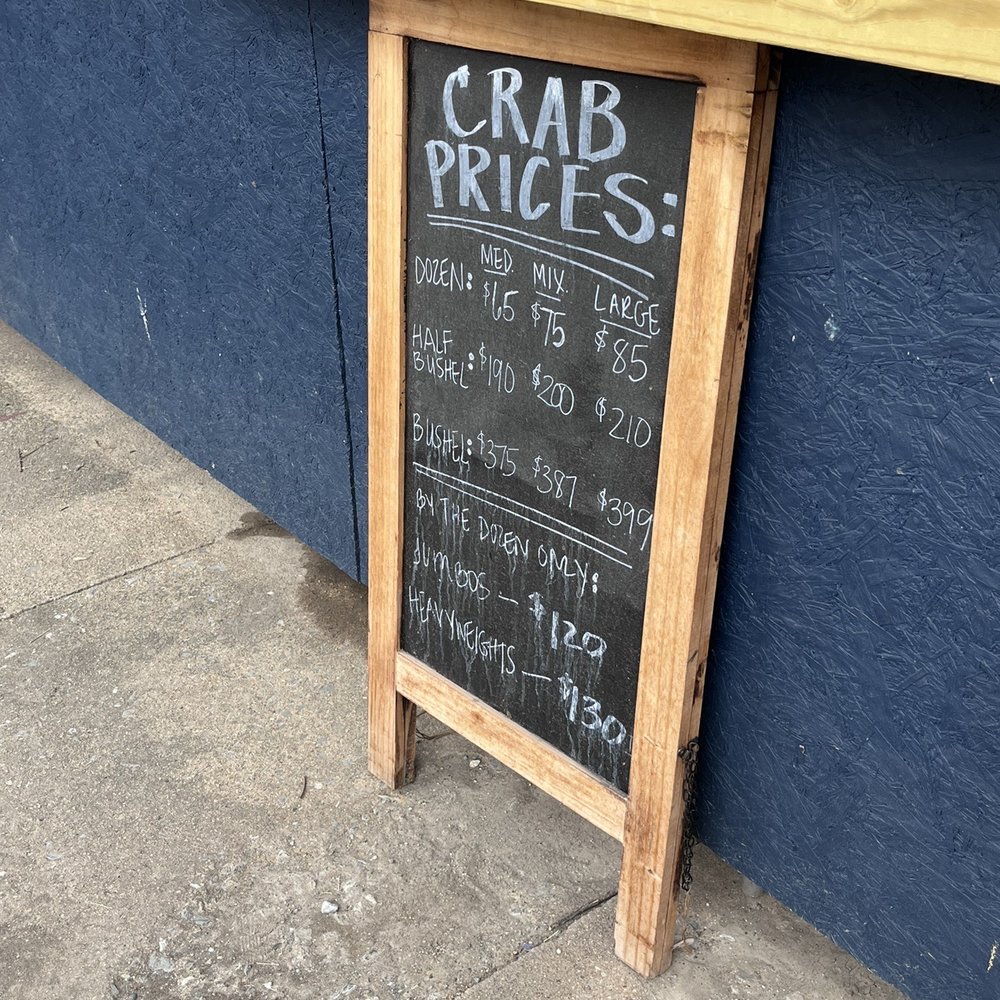 CRAB
PRICES:
MED. MIX. LARGE
DOZEN: $65 $75 $85
HALF
BUSHEL: $190 $200 $210
BUSHEL: $375 $387 $399
BY THE DOZEN ONLY:
JUMBOS — $120
HEAVYWEIGHTS — $130